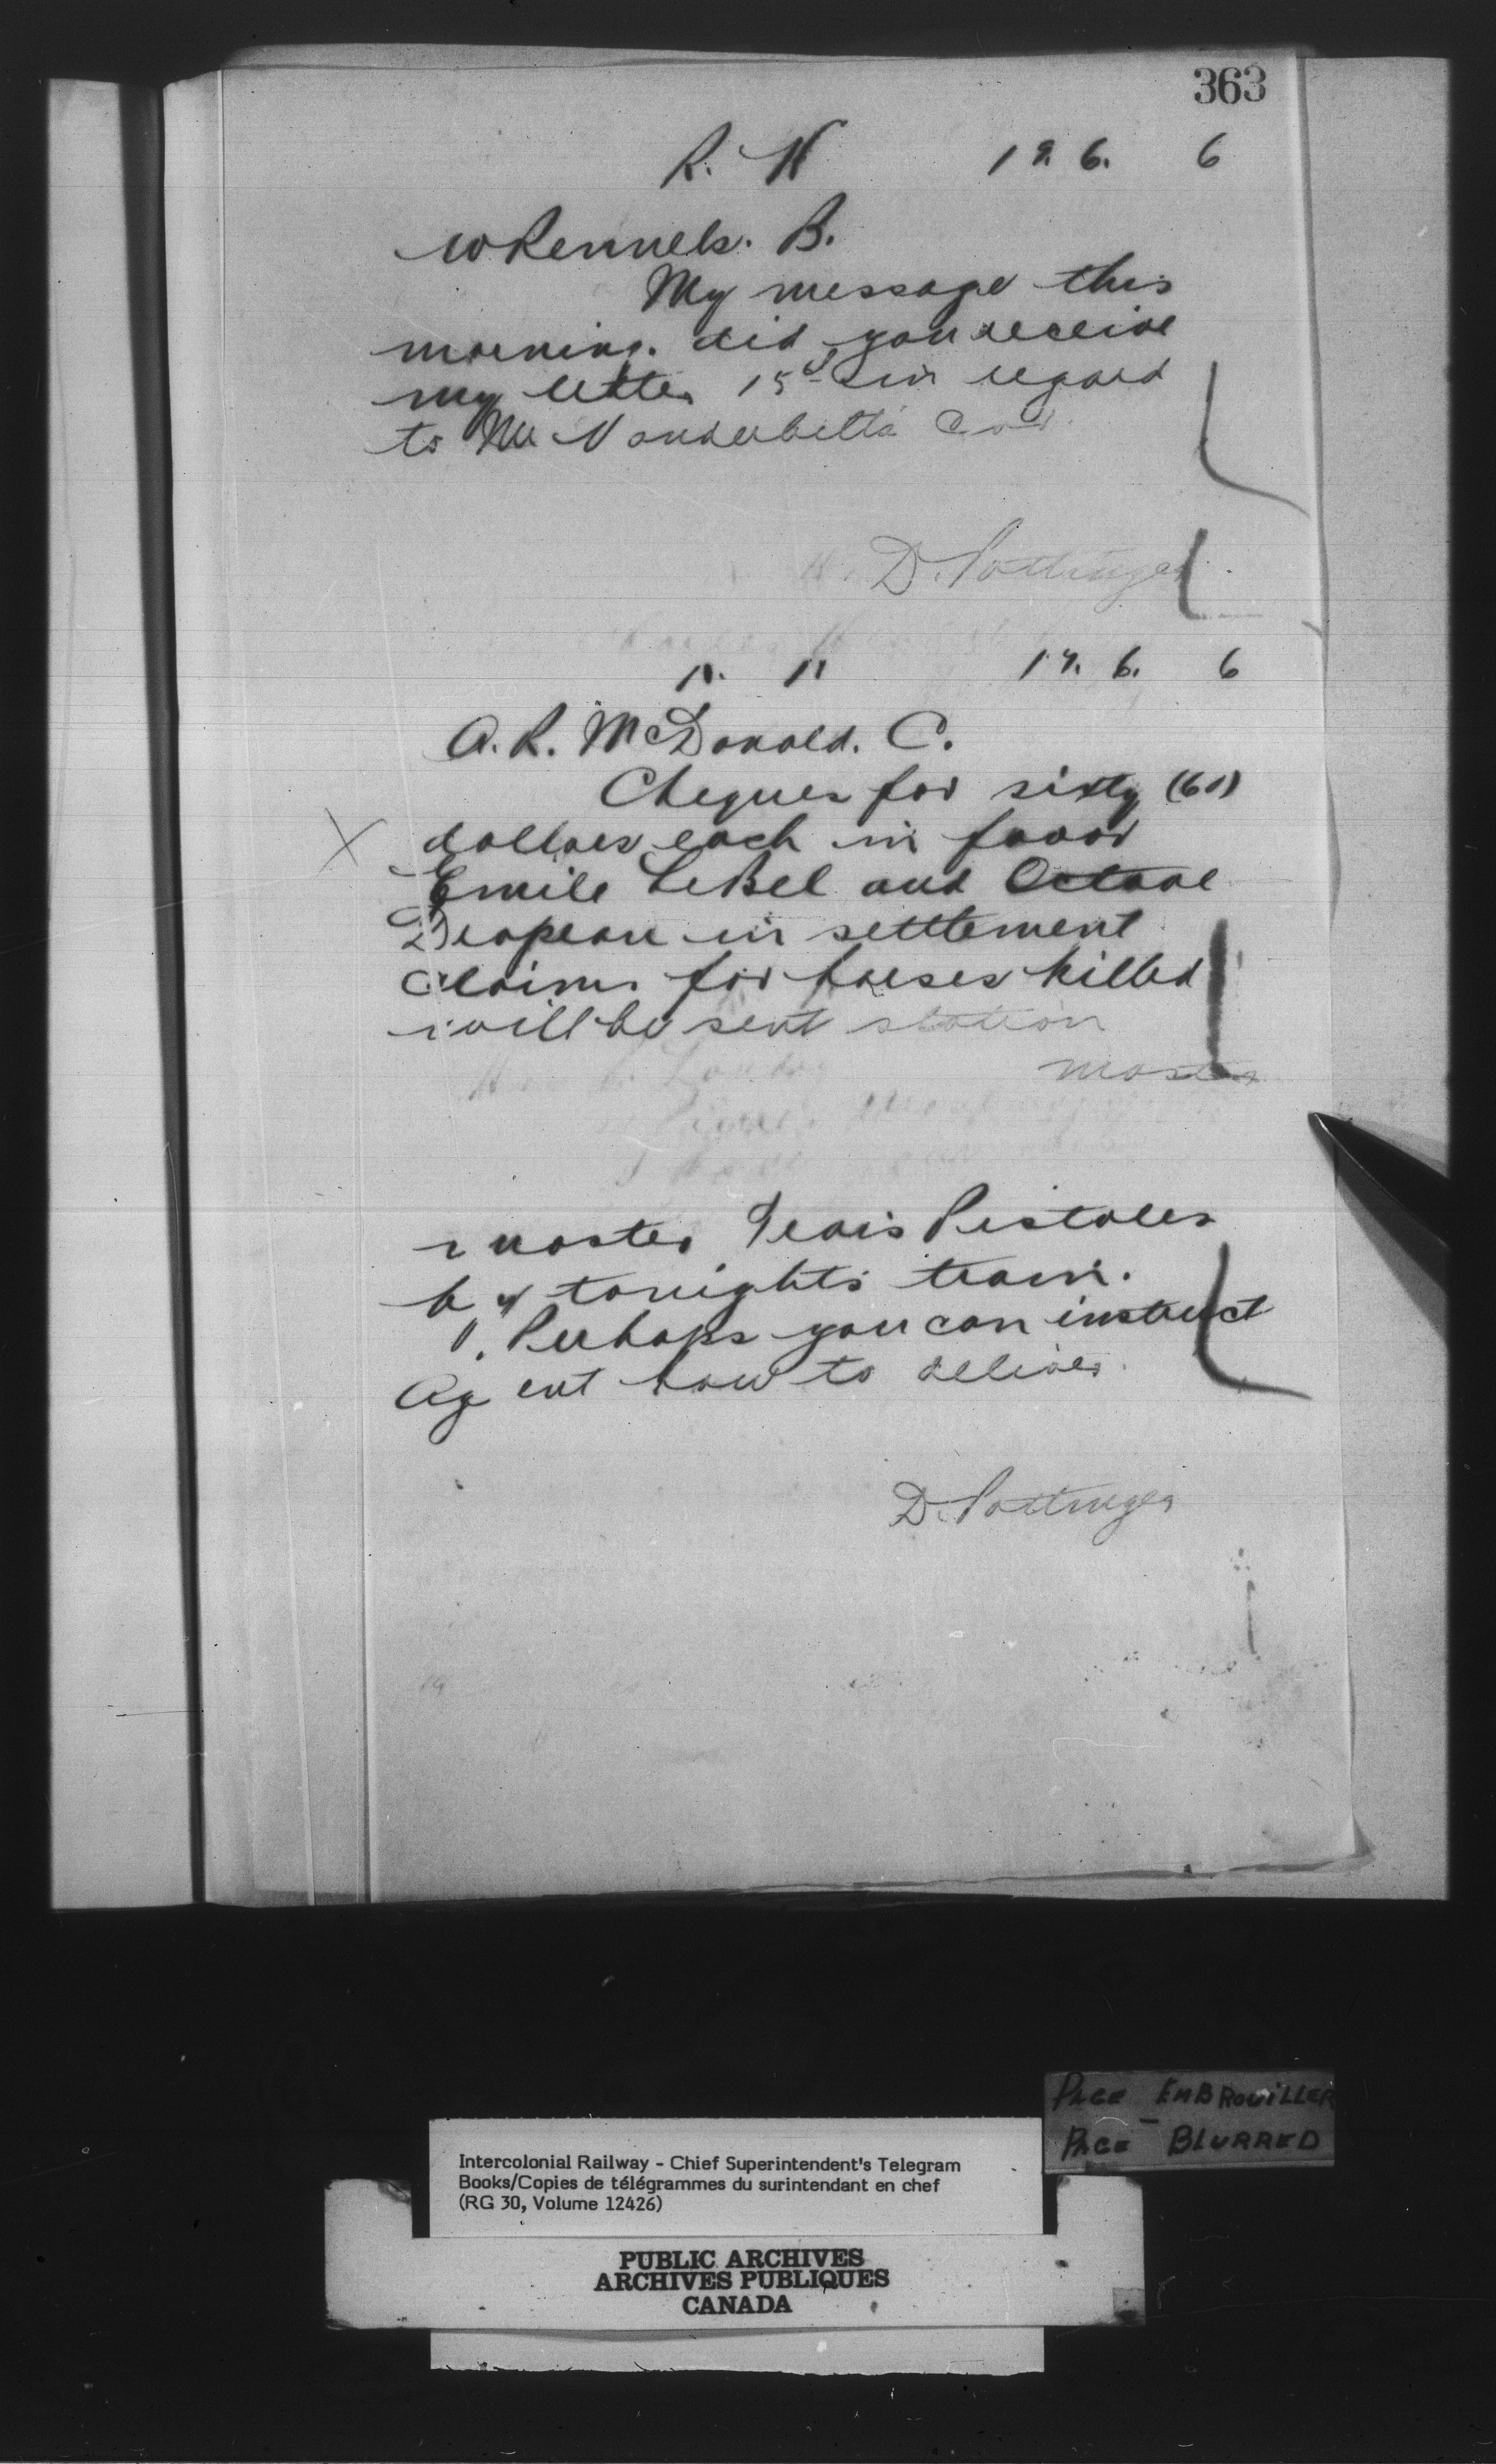 363
R. H 19. 6. 6
W Rennels. B.
My message this
morning. did you receive
my letter 15th in regard
to Mr Vanderbilts Car.
D. Pottinger
17. 6. 6
A. R. McDonald. C.
Cheques for sixty (60)
dollars each in favor
Emile LeBel and Octave
in settlement
Claims for horses killed
will be sent station
master
master Trois Pistoles
by tonights train.
Perhaps you can instruct
Agent how to deliver.
D. Pottinger
PAGE EMBROUILLER
PAGE BLURRED
Intercolonial Railway - Chief Superintendent's Telegram
Books/Copies de télégrammes du surintendant en chef
(RG 30, Volume 12426)
PUBLIC ARCHIVES
ARCHIVES PUBLIQUES
CANADA